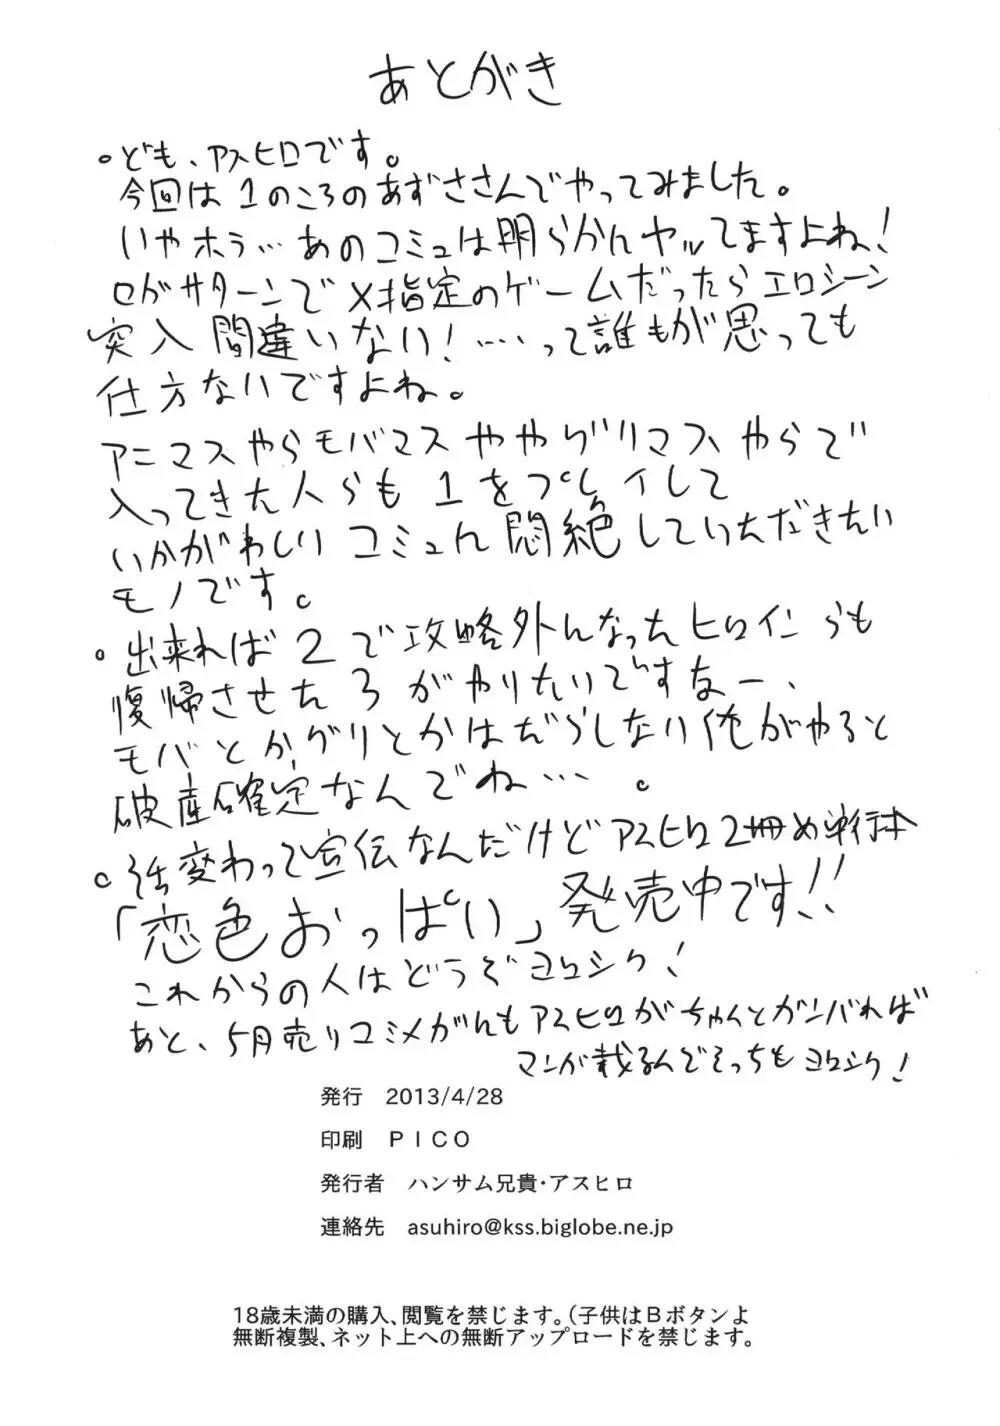 あとがき
。ども、アスヒロです。
今回は1のころのあずささんでやってみました。
いやホラ…あのコミュは明らかんヤッてますよね!
ロがサターンでX指定のゲームだったらエロシーン
突入間違いない!……って誰もが思っても
仕方ないですよね。
アニマスやらモバマスややグリマスやらで
入ってきた人らも1をプレイして
いかがわしいコミュん悶絶していただきたい
モノです。
。出来れば2で攻略外んなったヒロインらも
復帰させた3がやりたいですなー、
モバとかグリとかはだらしない俺がやると
破産確定なんでね…。
。話変わって宣伝なんだけどアスヒロ2冊め単行本
「恋色おっぱい」発売中です!!
これからの人はどうぞヨロシク!
あと、5月売りコミメガんもアスヒロがちゃんとガンバれば
マンが載るんでそっちもヨロシク!
発行 2013/4/28
印刷 PICO
発行者 ハンサム兄貴・アスヒロ
連絡先 asuhiro@kss.biglobe.ne.jp
18歳未満の購入、閲覧を禁じます。(子供はBボタンよ
無断複製、ネット上への無断アップロードを禁じます。